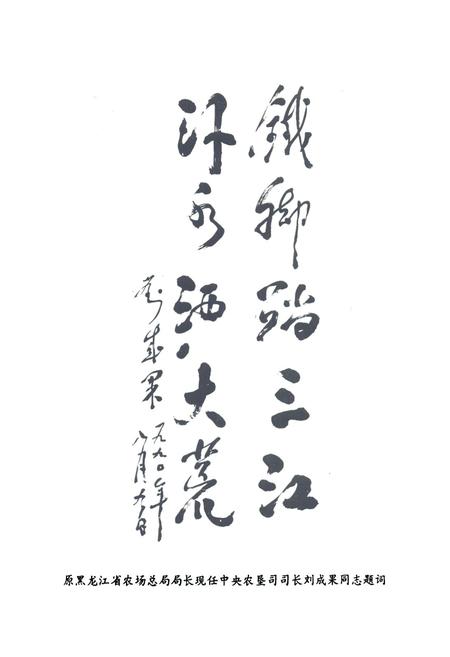 鐵脚踏三江
汗水洒大荒
刘成果
一九九〇年
八月九日
原黑龙江省农场总局局长现任中央农垦司司长刘成果同志题词